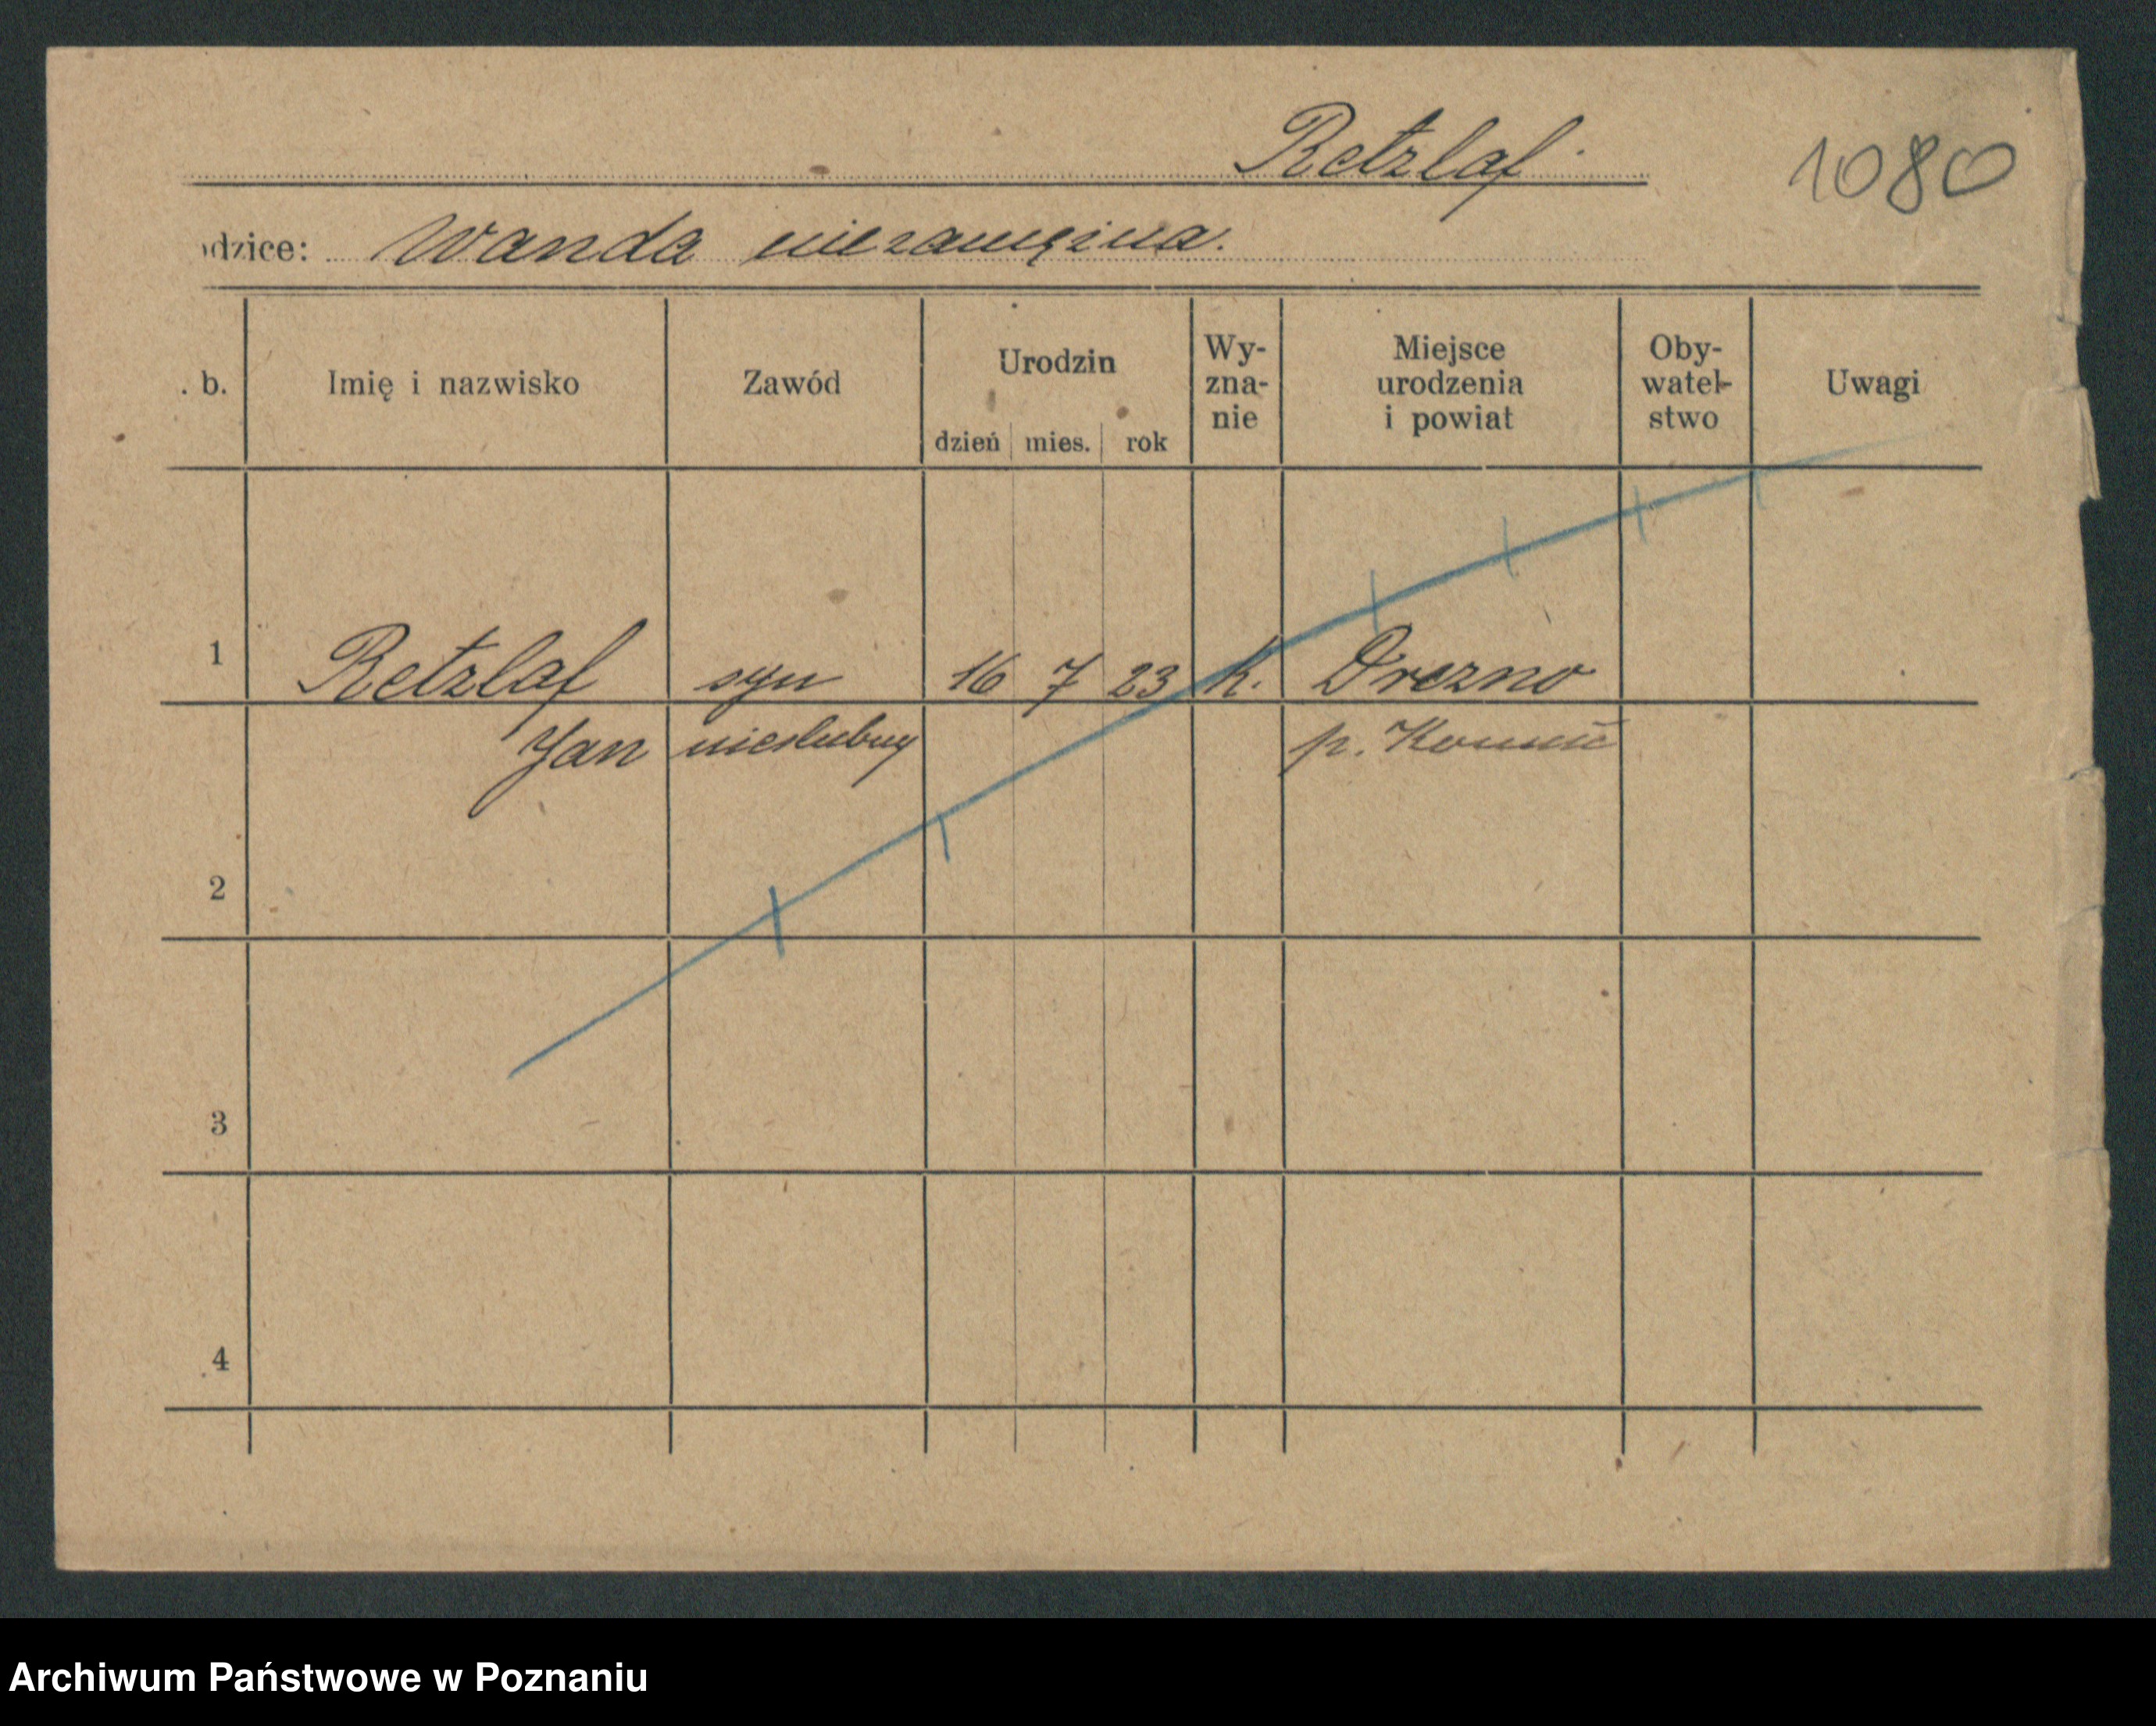 Retzlaf
1080
odzice: Wanda niezamężna.
. b. Imię i nazwisko Zawód Urodzin dzień mies. rok Wy-zna-nie Miejsce urodzenia i powiat Oby-watel-stwo Uwagi
1 Retzlaf syn 16 7 23 k. Drezno
Jan nieslubny p.
2
3
4
Archiwum Państwowe w Poznaniu